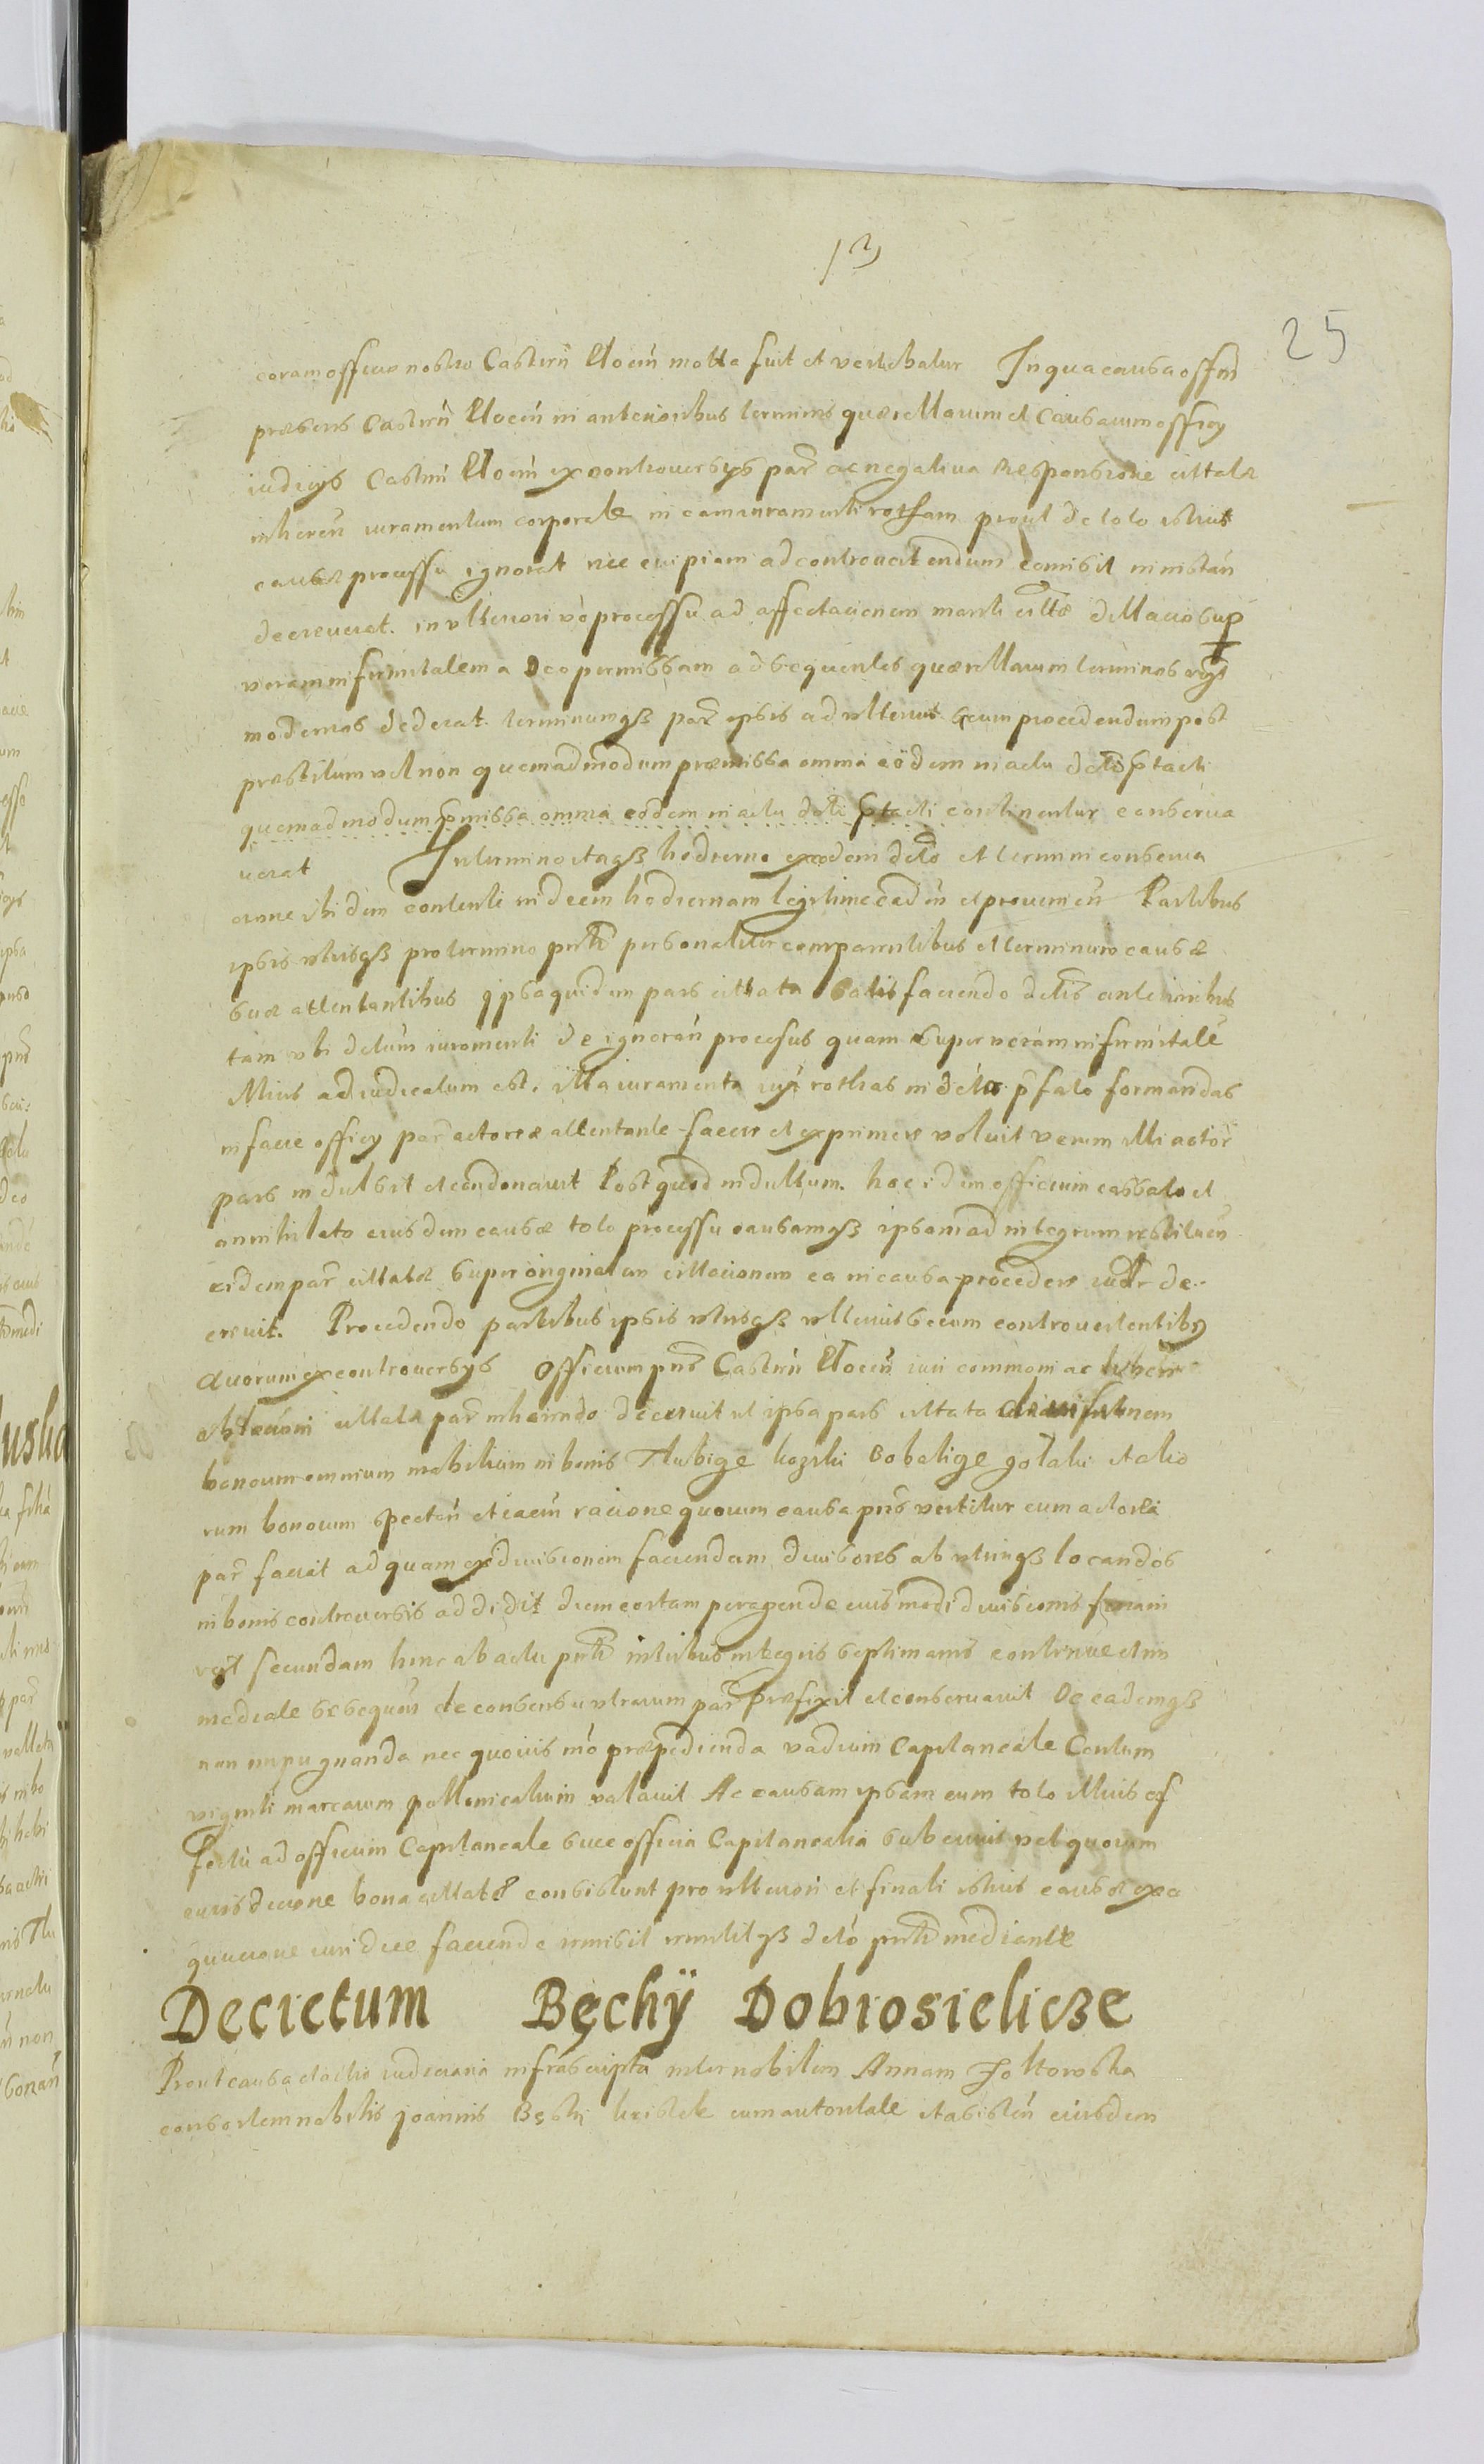 13
25
coram officio nostro Castren Plocen motta fuit et vertebatur In qua causa offm
præsens Castren Plocen in anterioribus terminis quærellarum et Causarum officy
iudicys Castren Plocen ex controversys par ac negativa Responsione cittatæ
inheren iuramentum corporale in eam iuramenti rotham prout de toto istius
causæ processu ignorat nec cuipiam ad controvertendum comisit ministran
decreverat. in vlteriori vo processu ad affectationem manti citte dillatio sup
veram infirmitatem a Deo permissam ad sequentes quærellarum terminos vigt
modernos dederat. terminumqз par ipsis ad vlterius secum procedendum post
præstitum vel non quemadmodum præmissa omnia eodem in actu decti ptacti
quemadmodum pmissa omnia eodem in actu decti ptacti continentur conserva
verat In termino itaqз hodierno ex eodem decto et termini conserva
cione ibidem contenti in diem hodiernam legitime caden et provenien Partibus
ipsis utrisqз pro termino pnti personaliter comparentibus et terminum causæ
suæ attentantibus ipsa quidem pars cittata Satisfaciendo dctis anterioribus
tam vbi dctum iuramenti de ignoran procesus quam super veram infirmitate
illius adiudicatum est. illa iuramenta iuxt rothas in decto pfato formandas
in facie officy par actoreæ attentante facere et exprimere voluit verum illi actor
pars indulsit et condonavit Post quod indultum. hoc idem officium cassato et
annihilato eiusdem causæ toto processu causamqз ipsam ad integrum restituen
eidem par cittatæ super originalem cittacionem ea in causa procedere iudr de-
crevit. Procedendo partibus ipsis utrisqз vlterius secum controvertentibus
Quorum ex controversys Officium pns Castren Plocen iuri communi ac
oblacioni cittatæ par inherendo decrevit ut ipsa pars cittata divisionem
bonorum omnium mobilium in bonis Tłubice kozski Sobalice gołaki et alio
rum bonorum specten et iacen racione quorum causa pns vertitur cum actorea
par faciat ad quam ex divisionem faciendam divisores ab utrinqз locandos
in bonis controversis addidit diem certam peragendæ eiusmodi divisionis feriam
vigt secundam hinc ab actu pnti in tribus integris septimanis continue et im
mediate sequen de consensu utrarum par præfixit et conservavit De eademqз
non impugnanda nec quovis mo præpedienda vadium Capitaneale Centum
viginti marcarum pollonicalium valavit Ac causam ipsam cum toto illius ef
fectu ad officium Capitaneale suce officia Capitanealia sub cuius vel quorum
eiurisdicione bona cittatæ consistunt pro vlteriori et finali istius causæ exe
quucione iuridice facienda remisit remittitqз decto pnti mediante
Decretum Bęchÿ Dobrosielicze
Prout causa et actio iudiciaria infrascripta inter nobilem Annam Zoltowska
consortem nobilis Joannis Bęski kristek cum autoritate et asisten eiusdem